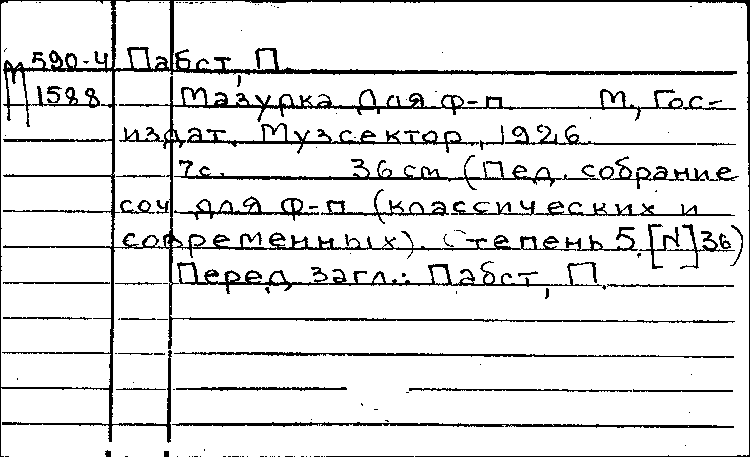 М 590-4 Пабст, П.
1588 Мазурка для ф-п М., Гос-
издат. Музсектор, 1926.
7с. 36 cm (Пед. собрание
соч для ф-п (классических и
современных). Степень 5. [N] 36)
Перед загл.: Пабст, П.